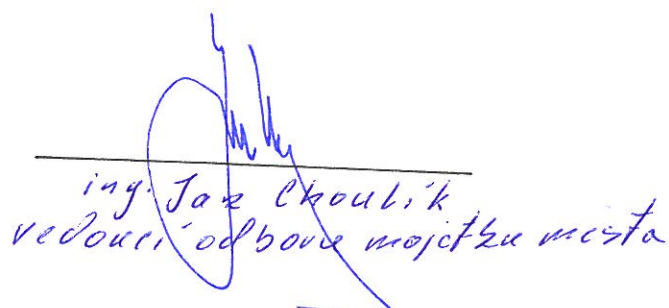 ing. Jan Choulík
vedoucí odboru majetku města